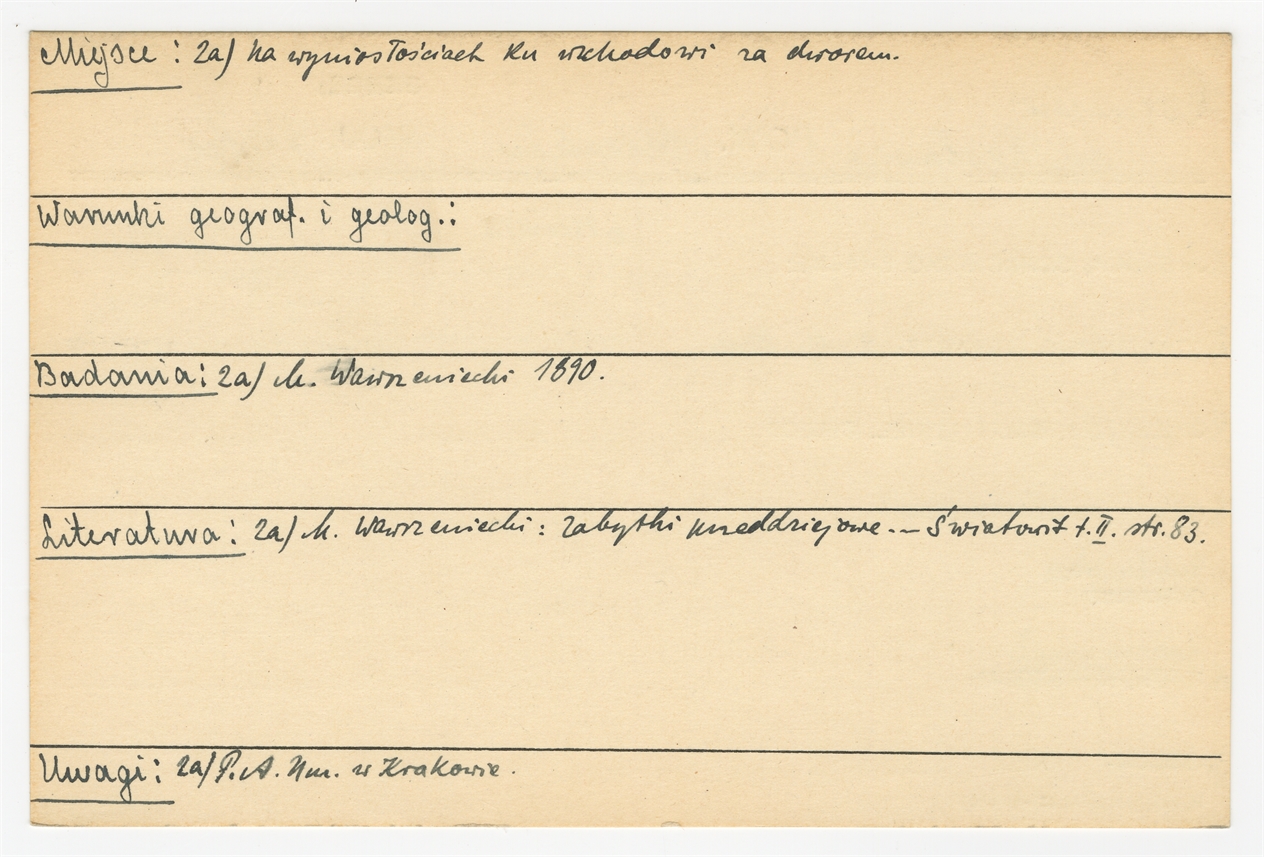 Miejsce : 2a) na wyniosłościach ku wschodowi za dworem.
Warunki geograf. i geolog.:
Badania: 2a) M. Wawrzeniecki 1890.
Literatura: 2a) M. Wawrzeniecki: Zabytki przeddziejowe. – Światowit t. II. str. 83.
Uwagi: 2a) P. A. Um. w Krakowie.